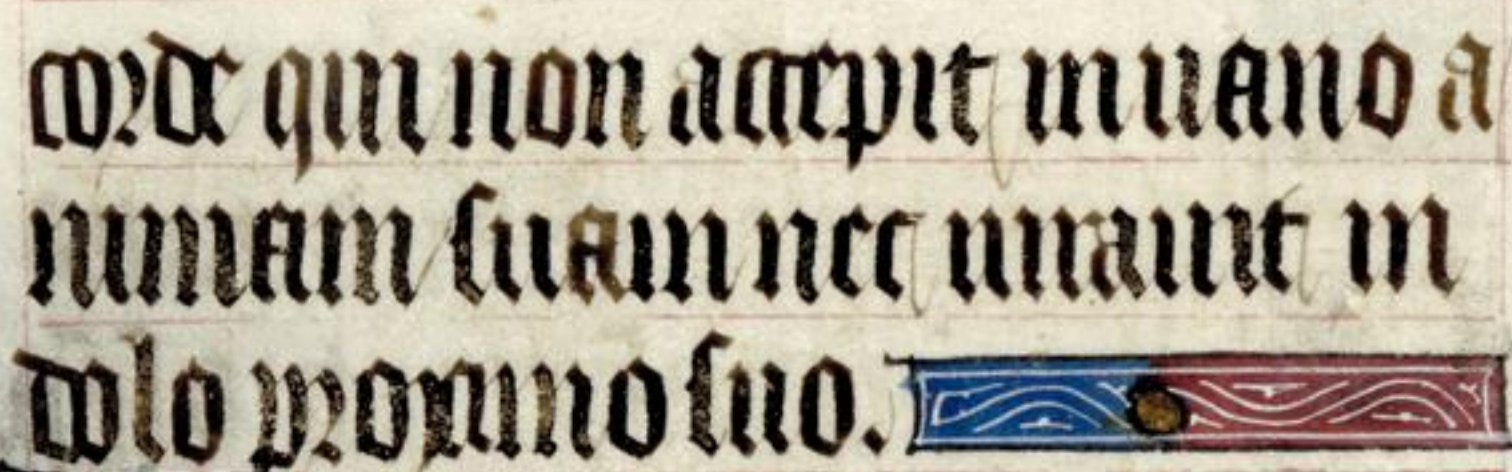 corde qui non accepit in uano a
nimam suam nec iurauit in
dolo proximo suo.